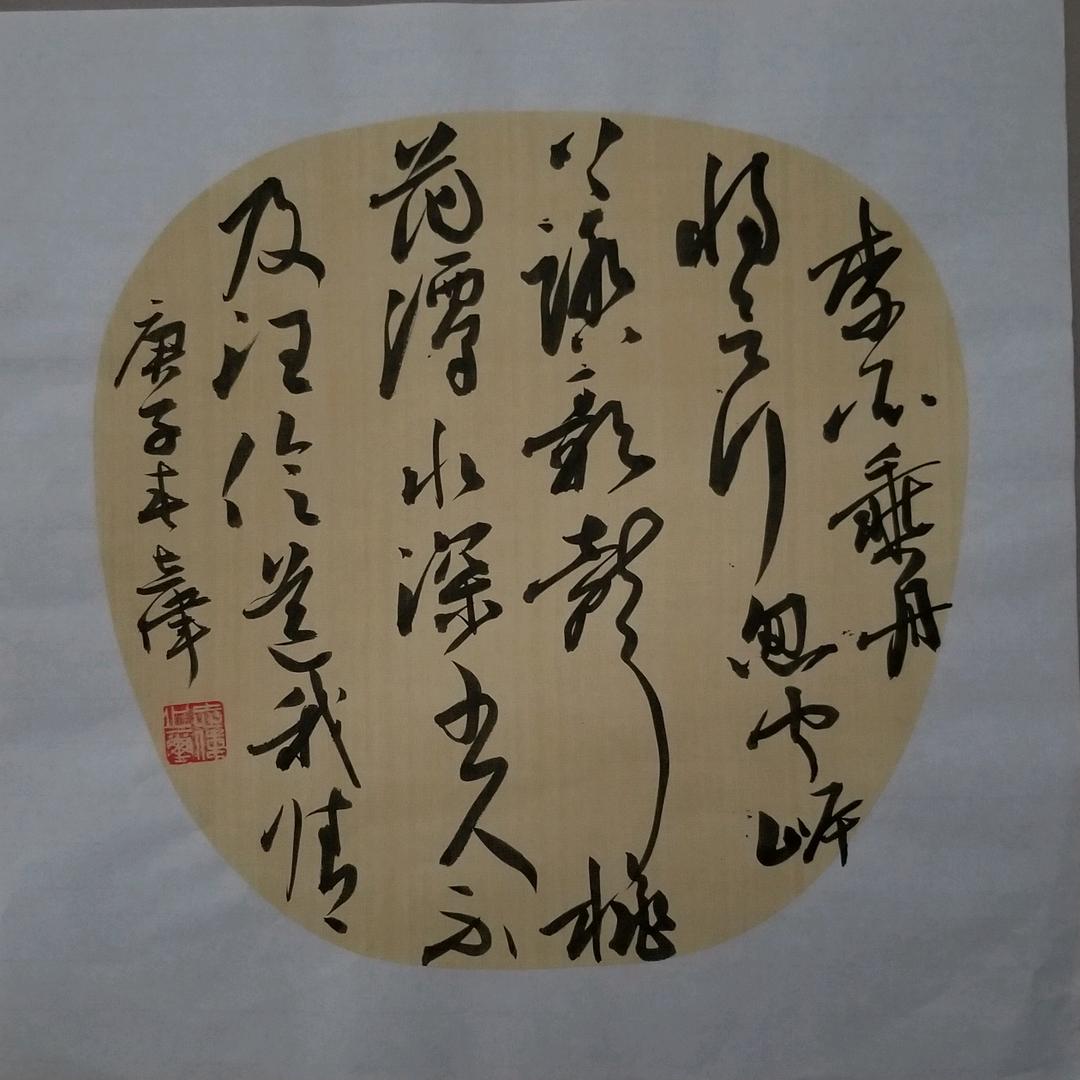 李白乘舟
将欲行忽闻岸
上踏歌声桃
花潭水深千尺不
及汪伦送我情
庚子春